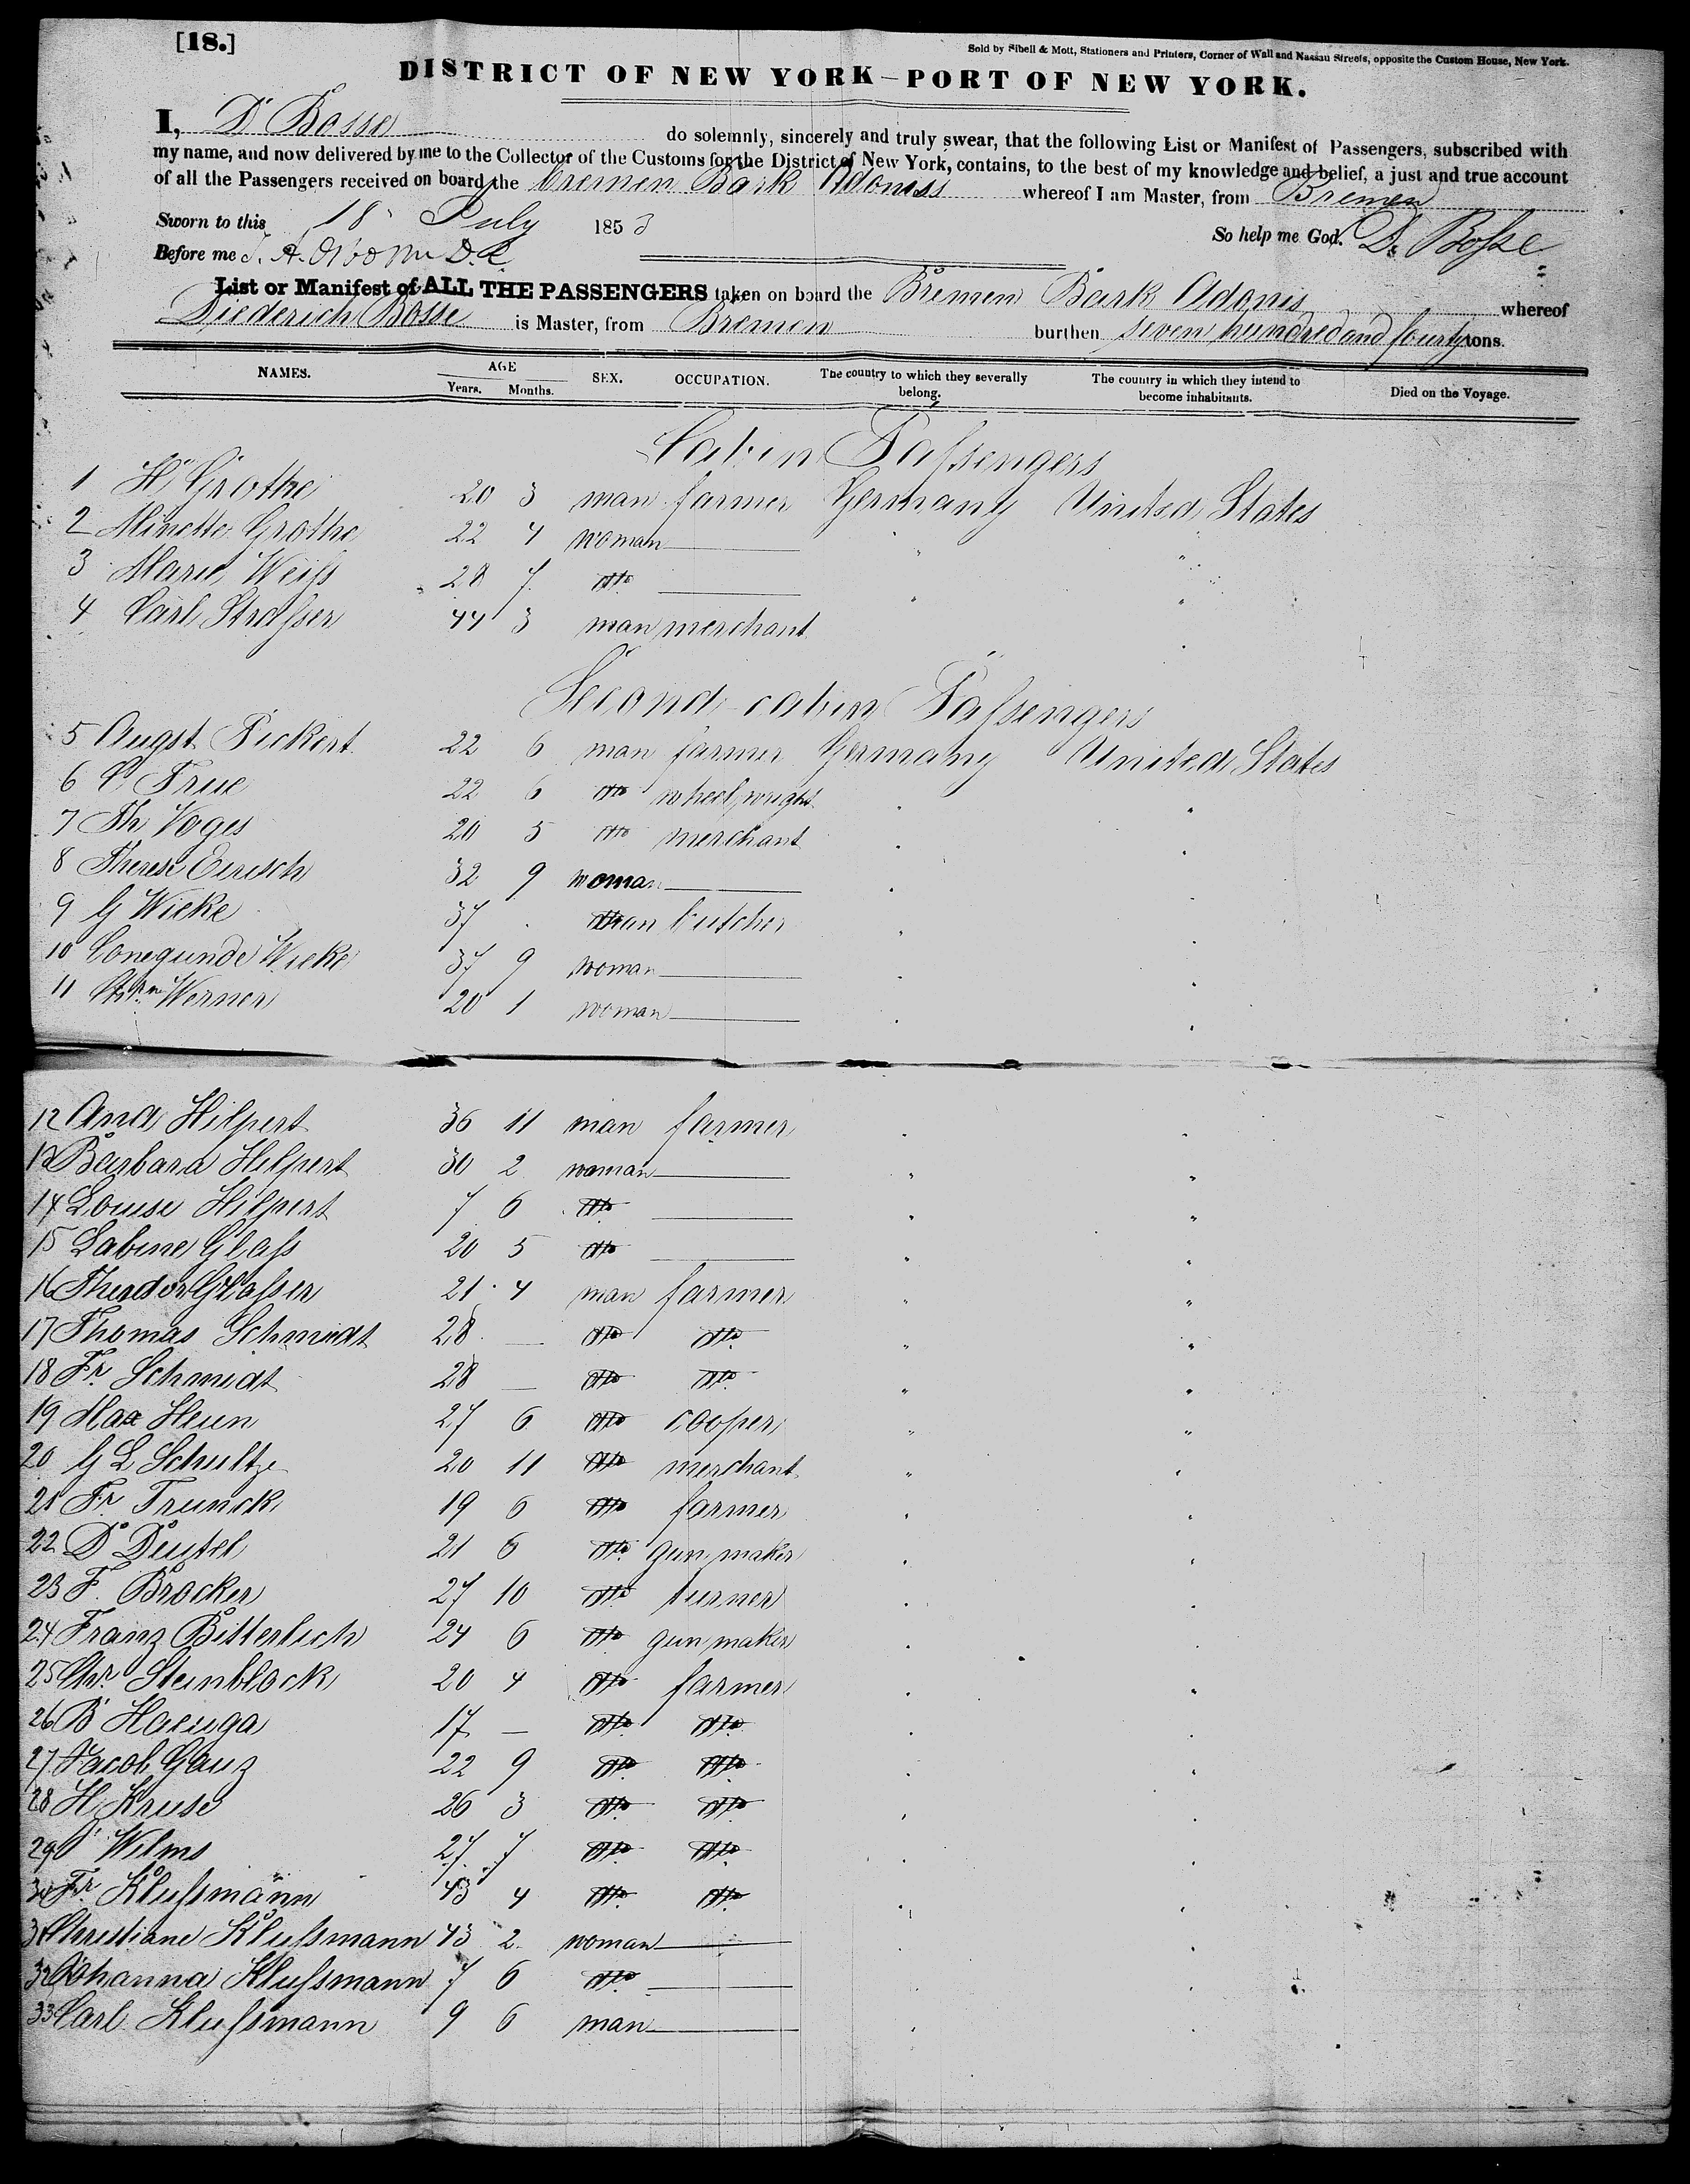 [18.]
Sold by Sibell & Mott, Stationers and Printers, Corner of Wall and Nassau Streets, opposite the Custom House, New York.
DISTRICT OF NEW YORK—PORT OF NEW YORK.
I, D Bosse do solemnly, sincerely and truly swear, that the following List or Manifest of Passengers, subscribed with
my name, and now delivered by me to the Collector of the Customs for the District of New York, contains, to the best of my knowledge and belief, a just and true account
of all the Passengers received on board the Bremen Bark Adonis whereof I am Master, from Bremen
Sworn to this 18 July 1853
So help me God. D. Bosse
Before me
List or Manifest of ALL THE PASSENGERS taken on board the Bremen Bark Adonis whereof
Diederich Bosse is Master, from Bremen burthen seven hundred and fourty tons.
NAMES. AGE Years. Months. SEX. OCCUPATION. The country to which they severally belong. The country in which they intend to become inhabitants. Died on the Voyage.
Cabin Passengers
1 H Grothe 20 3 man farmer Germany United States
2 Minette Grothe 22 4 woman " "
3 Marie Weiss 28 7 dto " "
4 Carl Strasser 44 3 man merchant "
Second cabin Passengers
5 Augst Pickert 22 6 man farmer Germany United States
6 C Frue 22 6 dto wheelwright " "
7 Th Voges 20 5 dto merchant " "
8 Therese 32 9 woman "
9 G Wicke 37 man butcher " "
10 Conegunde Wicke 37 9 woman " "
11 Werner 20 1 woman " "
12 And Hilpert 36 11 man farmer " "
13 Barbara Hilpert 30 2 woman " "
14 Louise Hilpert 7 6 dto " "
15 Sabine Glass 20 5 dto " "
16 Theodor Glasser 21 4 man farmer " "
17 Thomas Schmidt 28 — dto dto " "
18 Fr. Schmidt 28 — dto dto " "
19 Max Heun 27 6 dto cooper " "
20 G L Schultze 20 11 dto merchant " "
21 Fr. Trunck 19 6 dto farmer " "
22 D Deutel 21 6 dto gun maker " "
23 F. Brocker 27 10 dto turner " "
24 Franz Bitterlich 24 6 dto gun maker " "
25 Chr. Steinblock 20 4 dto farmer " "
26 B Hacuga 17 — dto dto " "
27 Jacob Ganz 22 9 dto dto " "
28 H Kruse 26 3 dto dto " "
29 Wilms 27 7 dto dto " "
30 Fr Klussmann 43 4 dto dto " "
31 Christiane Klussmann 43 2 woman " "
32 Johanna Klussmann 7 6 dto " "
33 Carl Klussmann 9 6 man " "